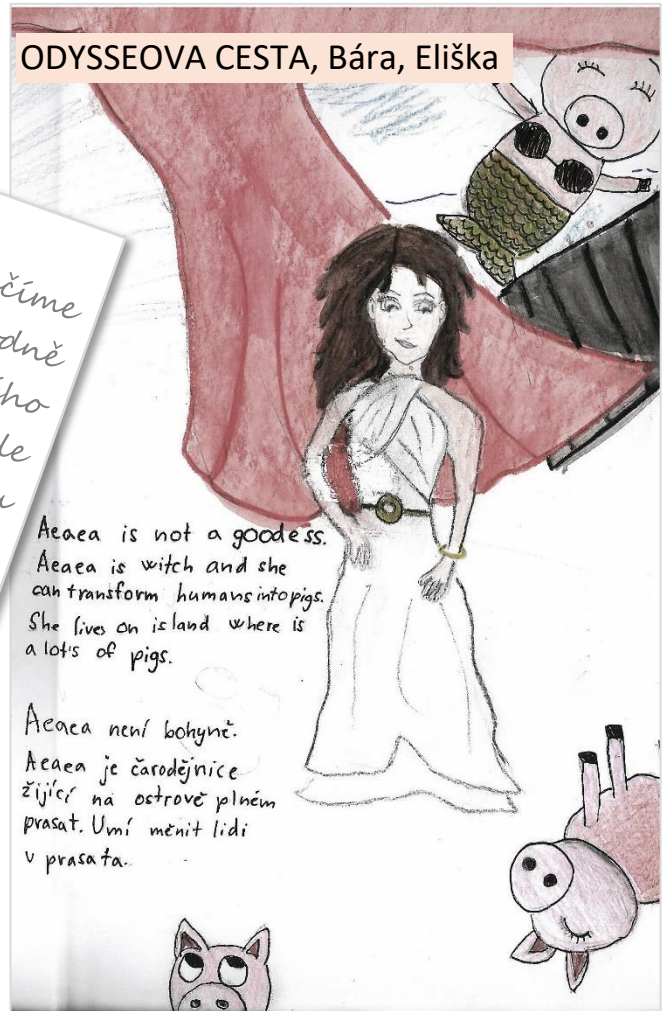 ODYSSEOVA CESTA, Bára, Eliška
číme
dně
ího
le
u
Aeaea is not a goodess.
Aeaea is witch and she
can transform humans into pigs.
She lives on island where is
a lot's of pigs.
Aeaea není bohyně.
Aeaea je čarodějnice
žijící na ostrově plném
prasat. Umí měnit lidi
v prasata.